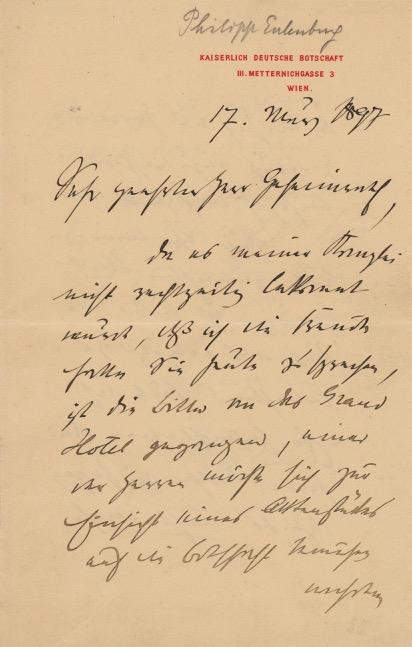 Philipp Eulenburg
KAISERLICH DEUTSCHE BOTSCHAFT
III. METTERNICHGASSE 3
WIEN.
17. März 1897
Sehr geehrter Herr Geheimrath,
Da es meiner Kanzlei
nicht rechtzeitig bekannt
wurde, daß ich die Freude
hatte Sie heute zu sprechen,
ist die Bitte an das Grand
Hotel gegangen, einer
der Herren möchte sich zur
Einsicht eines Aktenstückes
auf die Botschaft bemühen